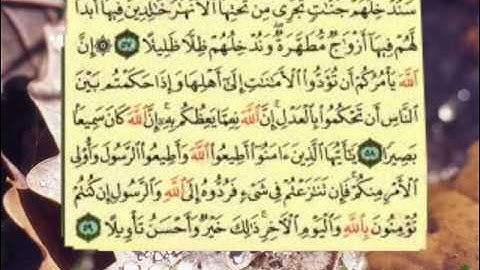 سَنُدْخِلُهُمْ جَنَّٰتٍ تَجْرِى مِن تَحْتِهَا ٱلْأَنْهَٰرُ خَٰلِدِينَ فِيهَآ أَبَدًا
لَّهُمْ فِيهَآ أَزْوَٰجٌ مُّطَهَّرَةٌ وَنُدْخِلُهُمْ ظِلًّا ظَلِيلًا ٥٧ ۞ إِنَّ
ٱللَّهَ يَأْمُرُكُمْ أَن تُؤَدُّوا۟ ٱلْأَمَٰنَٰتِ إِلَىٰٓ أَهْلِهَا وَإِذَا حَكَمْتُم بَيْنَ
ٱلنَّاسِ أَن تَحْكُمُوا۟ بِٱلْعَدْلِ إِنَّ ٱللَّهَ نِعِمَّا يَعِظُكُم بِهِۦٓ إِنَّ ٱللَّهَ كَانَ سَمِيعًۢا
بَصِيرًا ٥٨ يَٰٓأَيُّهَا ٱلَّذِينَ ءَامَنُوٓا۟ أَطِيعُوا۟ ٱللَّهَ وَأَطِيعُوا۟ ٱلرَّسُولَ وَأُو۟لِى
ٱلْأَمْرِ مِنكُمْ فَإِن تَنَٰزَعْتُمْ فِى شَىْءٍ فَرُدُّوهُ إِلَى ٱللَّهِ وَٱلرَّسُولِ إِن كُنتُمْ
تُؤْمِنُونَ بِٱللَّهِ وَٱلْيَوْمِ ٱلْأَخِرِ ذَٰلِكَ خَيْرٌ وَأَحْسَنُ تَأْوِيلًا ٥٩